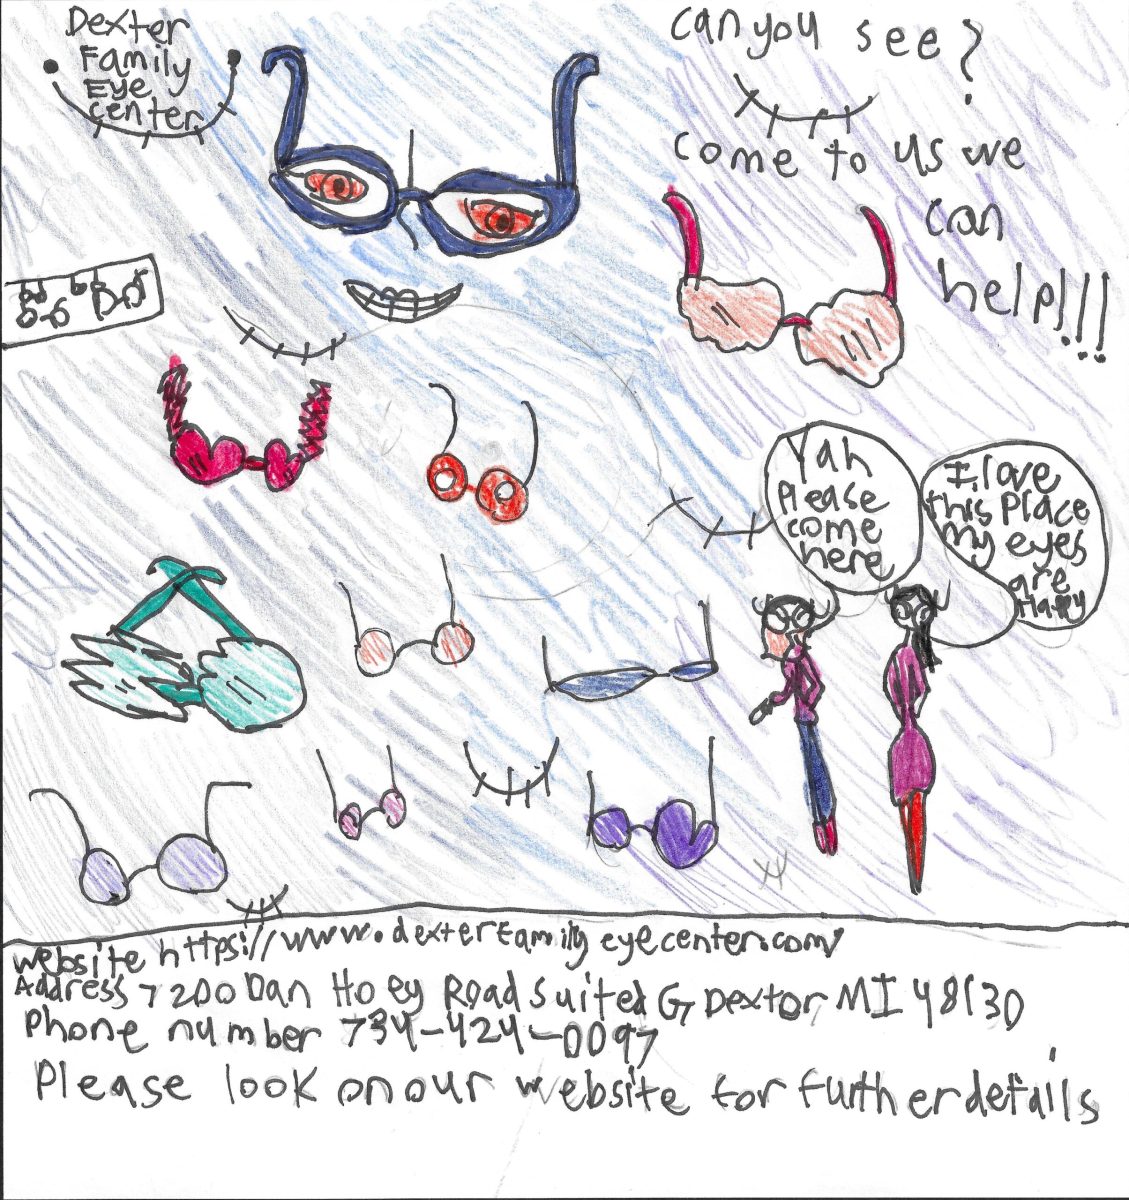 Dexter
Family
Eye
center
can you see?
come to us we
can
help!!!
Yah
Please
come
here
I love
this Place
my eyes
are
Happy
website https://www.dexterfamilyeyecenter.com/
Address 7200 Dan Hoey Road suited G Dextor MI 48130
Phone number 734-424-0097
Please look on our website for further details